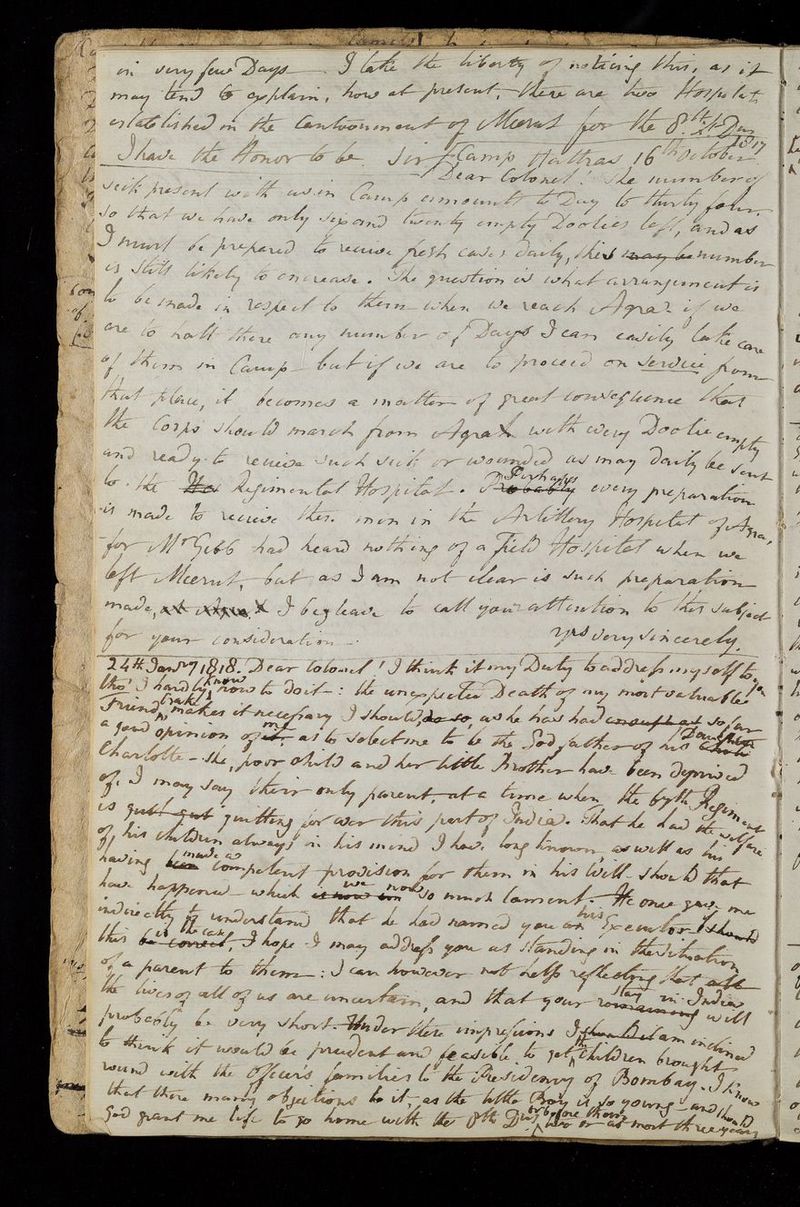 in very few Days. I take the liberty of noticing this, as it
may tend to explain, how at present, there are two Hospitals
established in the Cantonment of Meerut for the 8th Lt Dns
I have the Honor to be Sir Camp Hattras 16th October 1817
Dear Colonel! The number of
sick present with us in Camp amounts to Day to thirty four,
so that we have only six and twenty empty Doolies left, and as
I must be prepared to receive fresh cases daily, this may be number
is still likely to encrease. The question is what arrangement is
to be made in respect to them when we reach Agra? if we
are to halt there any number of Days I can easily take care
of them in Camp but if we are to proceed on service from
that place, it becomes a matter of great consequence that
the Corps should march from Agra with every Doolie empty
and ready to receive such sick or wounded as may daily be sent
to the Regimental Hospital. Probably Perhaps every preparation
is made to receive these men in the Artillery Hospital of Agra,
for Mr Gibb had heard nothing of a field Hospital when we
left Meerut, but as I am not clear is such preparation
made, I beg leave to call your attention to this subject
for your consideration. yrs very sincerely.
24th Jany 1818. Dear Colonel! I think it my Duty to address myself to you
tho' I hardly know how to do it: the unexpected Death of my most valuable
Friend makes it necessary I should do so, as he has had so far
a good opinion of me as to select me to be the Godfather of his Daughter
Charlotte - She, poor child and her little Brother have been deprived
of, I may say their only parent, at a time when the 67th Regiment
is quitting for ever this part of India. That he had the welfare
of his children always in his mind I have long known as well as his
having made a competent provision for them in his Will should that
have happened which we now so much lament. He once gave me
indirectly to understand that he had named you his Executor should
this be correct is the case, I hope I may address you as standing in the situation
of a parent to them: I can however not help reflecting that
the lives of all of us are uncertain, and that your remaining stay in India will
probably be very short. Under these impressions I am inclined
to think it would be prudent and feasible to get the children brought
round with the Officers families to the Presidency of Bombay. I know
that there many objections to it, as the little Boy is so young - and should
God grant me life to go home with the 8th Dns or before them two or at most three years